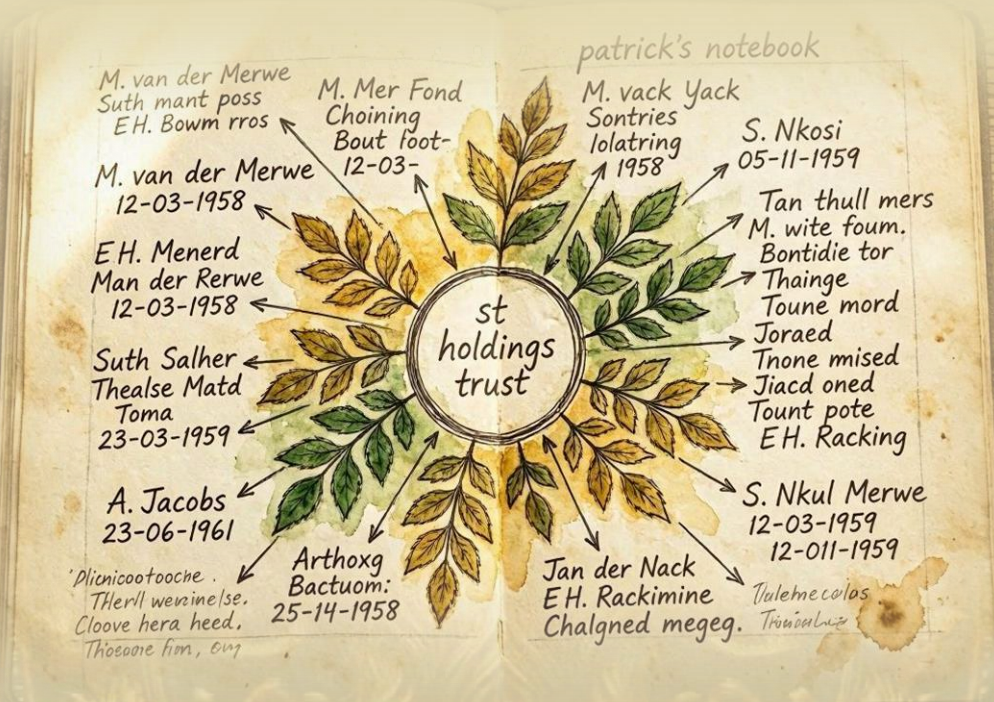 patrick's notebook
M. van der Merwe
Suth mant poss
E H. Bowm rros
M. Mer Fond
Choining
Bout foot-
12-03-
M. vack Yack
Sontries
lolatring
1958
S. Nkosi
05-11-1959
M. van der Merwe
12-03-1958
E H. Menerd
Man der Rerwe
12-03-1958
Suth Salher
Thealse Matd
Toma
23-03-1959
A. Jacobs
23-06-1961
st
holdings
trust
Tan thull mers
M. wite foum.
Bontidie tor
Thainge
Toune mord
Joraed
Tnone mised
Jiacd oned
Tount pote
E H. Racking
S. Nkul Merwe
12-03-1959
12-011-1959
Arthoxg
Bactuom:
25-14-1958
Jan der Nack
E H. Rackimine
Chalgned megeg.
Cloove hera heed.